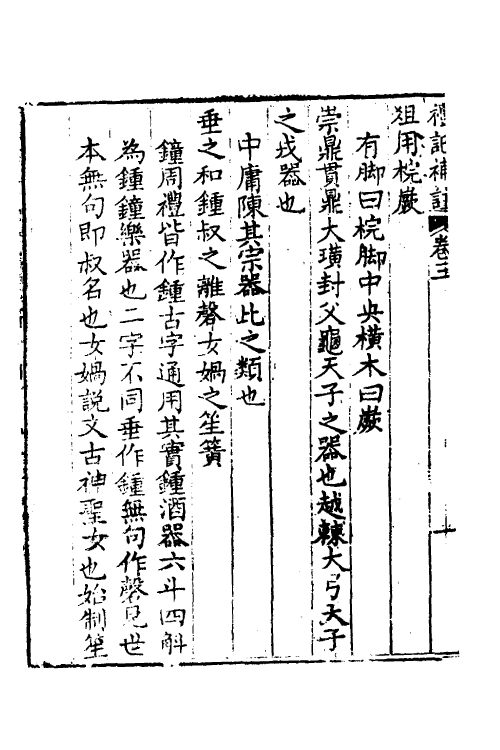 禮記補註 卷三
俎用梡嶡
有脚曰梡脚中央橫木曰嶡
崇鼎貫鼎大璜封父龜天子之器也越棘大弓天子
之戎器也
中庸陳其宗器此之類也
垂之和鍾叔之離磬女媧之笙簧
鐘周禮皆作鍾古字通用其實鍾酒器六斗四斛
為鍾鐘樂器也二字不同垂作鍾無句作磬見世
本無句即叔名也女媧說文古神聖女也始制笙